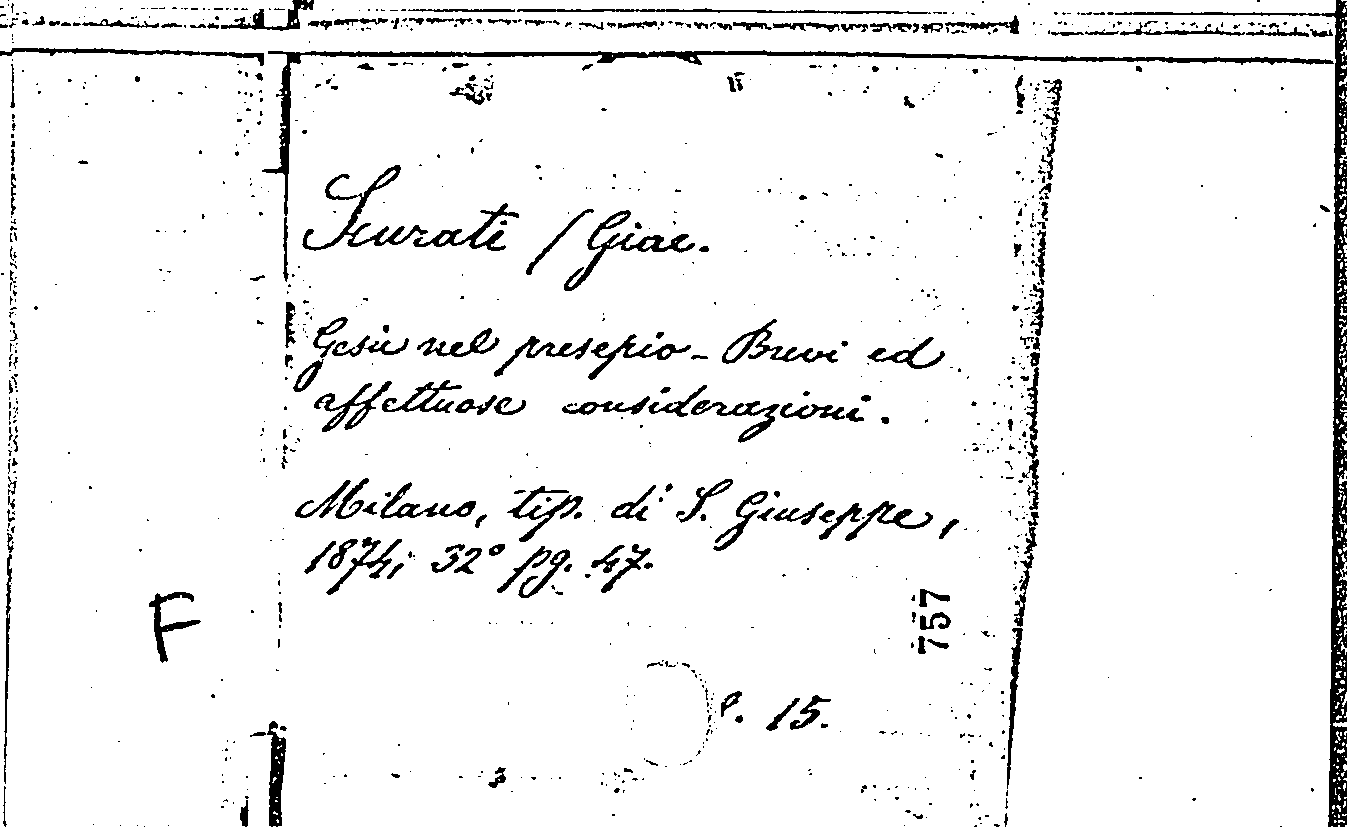 Scurati / Giac.
Gesù nel presepio - Brevi ed
affettuose considerazioni.
Milano, tip. di S. Giuseppe,
1874; 32° pg. 47.
F
757
15.